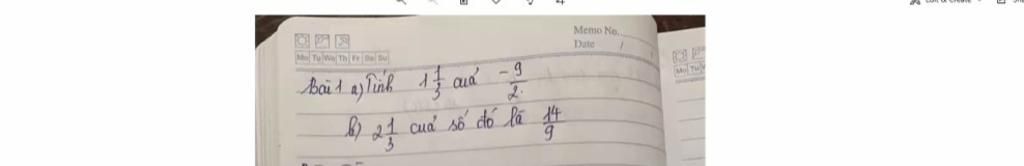 Memo No.
Date / /
Mo Tu We Th Fr Sa Su
Bài 1 a) Tính 1 1/3 của -9/2.
b) 2 1/3 của số đó là 14/9
Mo Tu